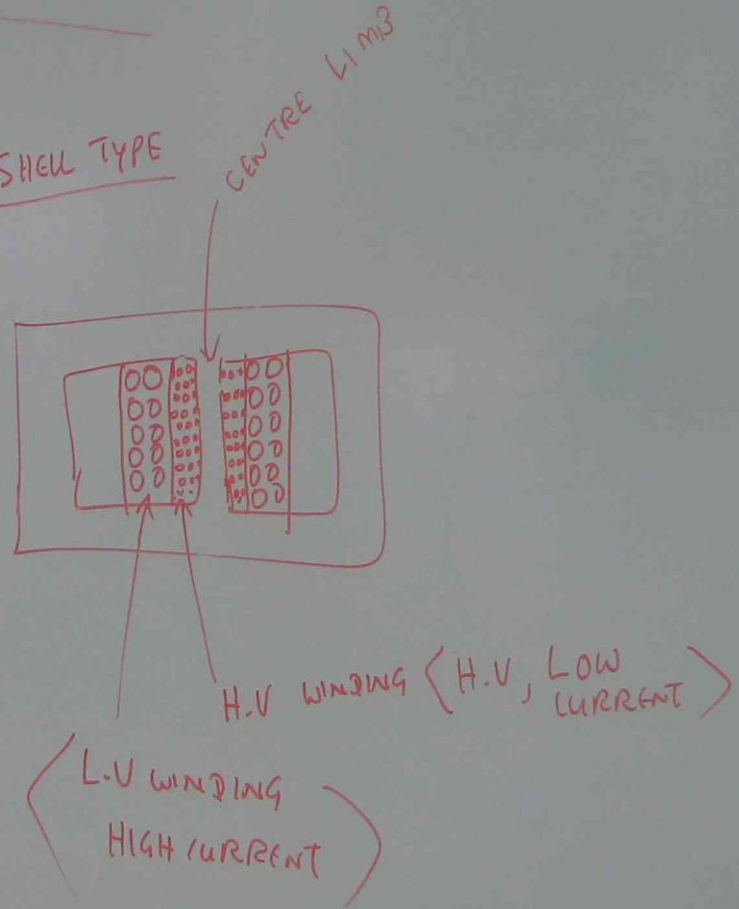 SHELL TYPE
CENTRE LIMB
H.V WINDING < H.V, LOW
CURRENT >
< L.V WINDING
HIGH CURRENT >